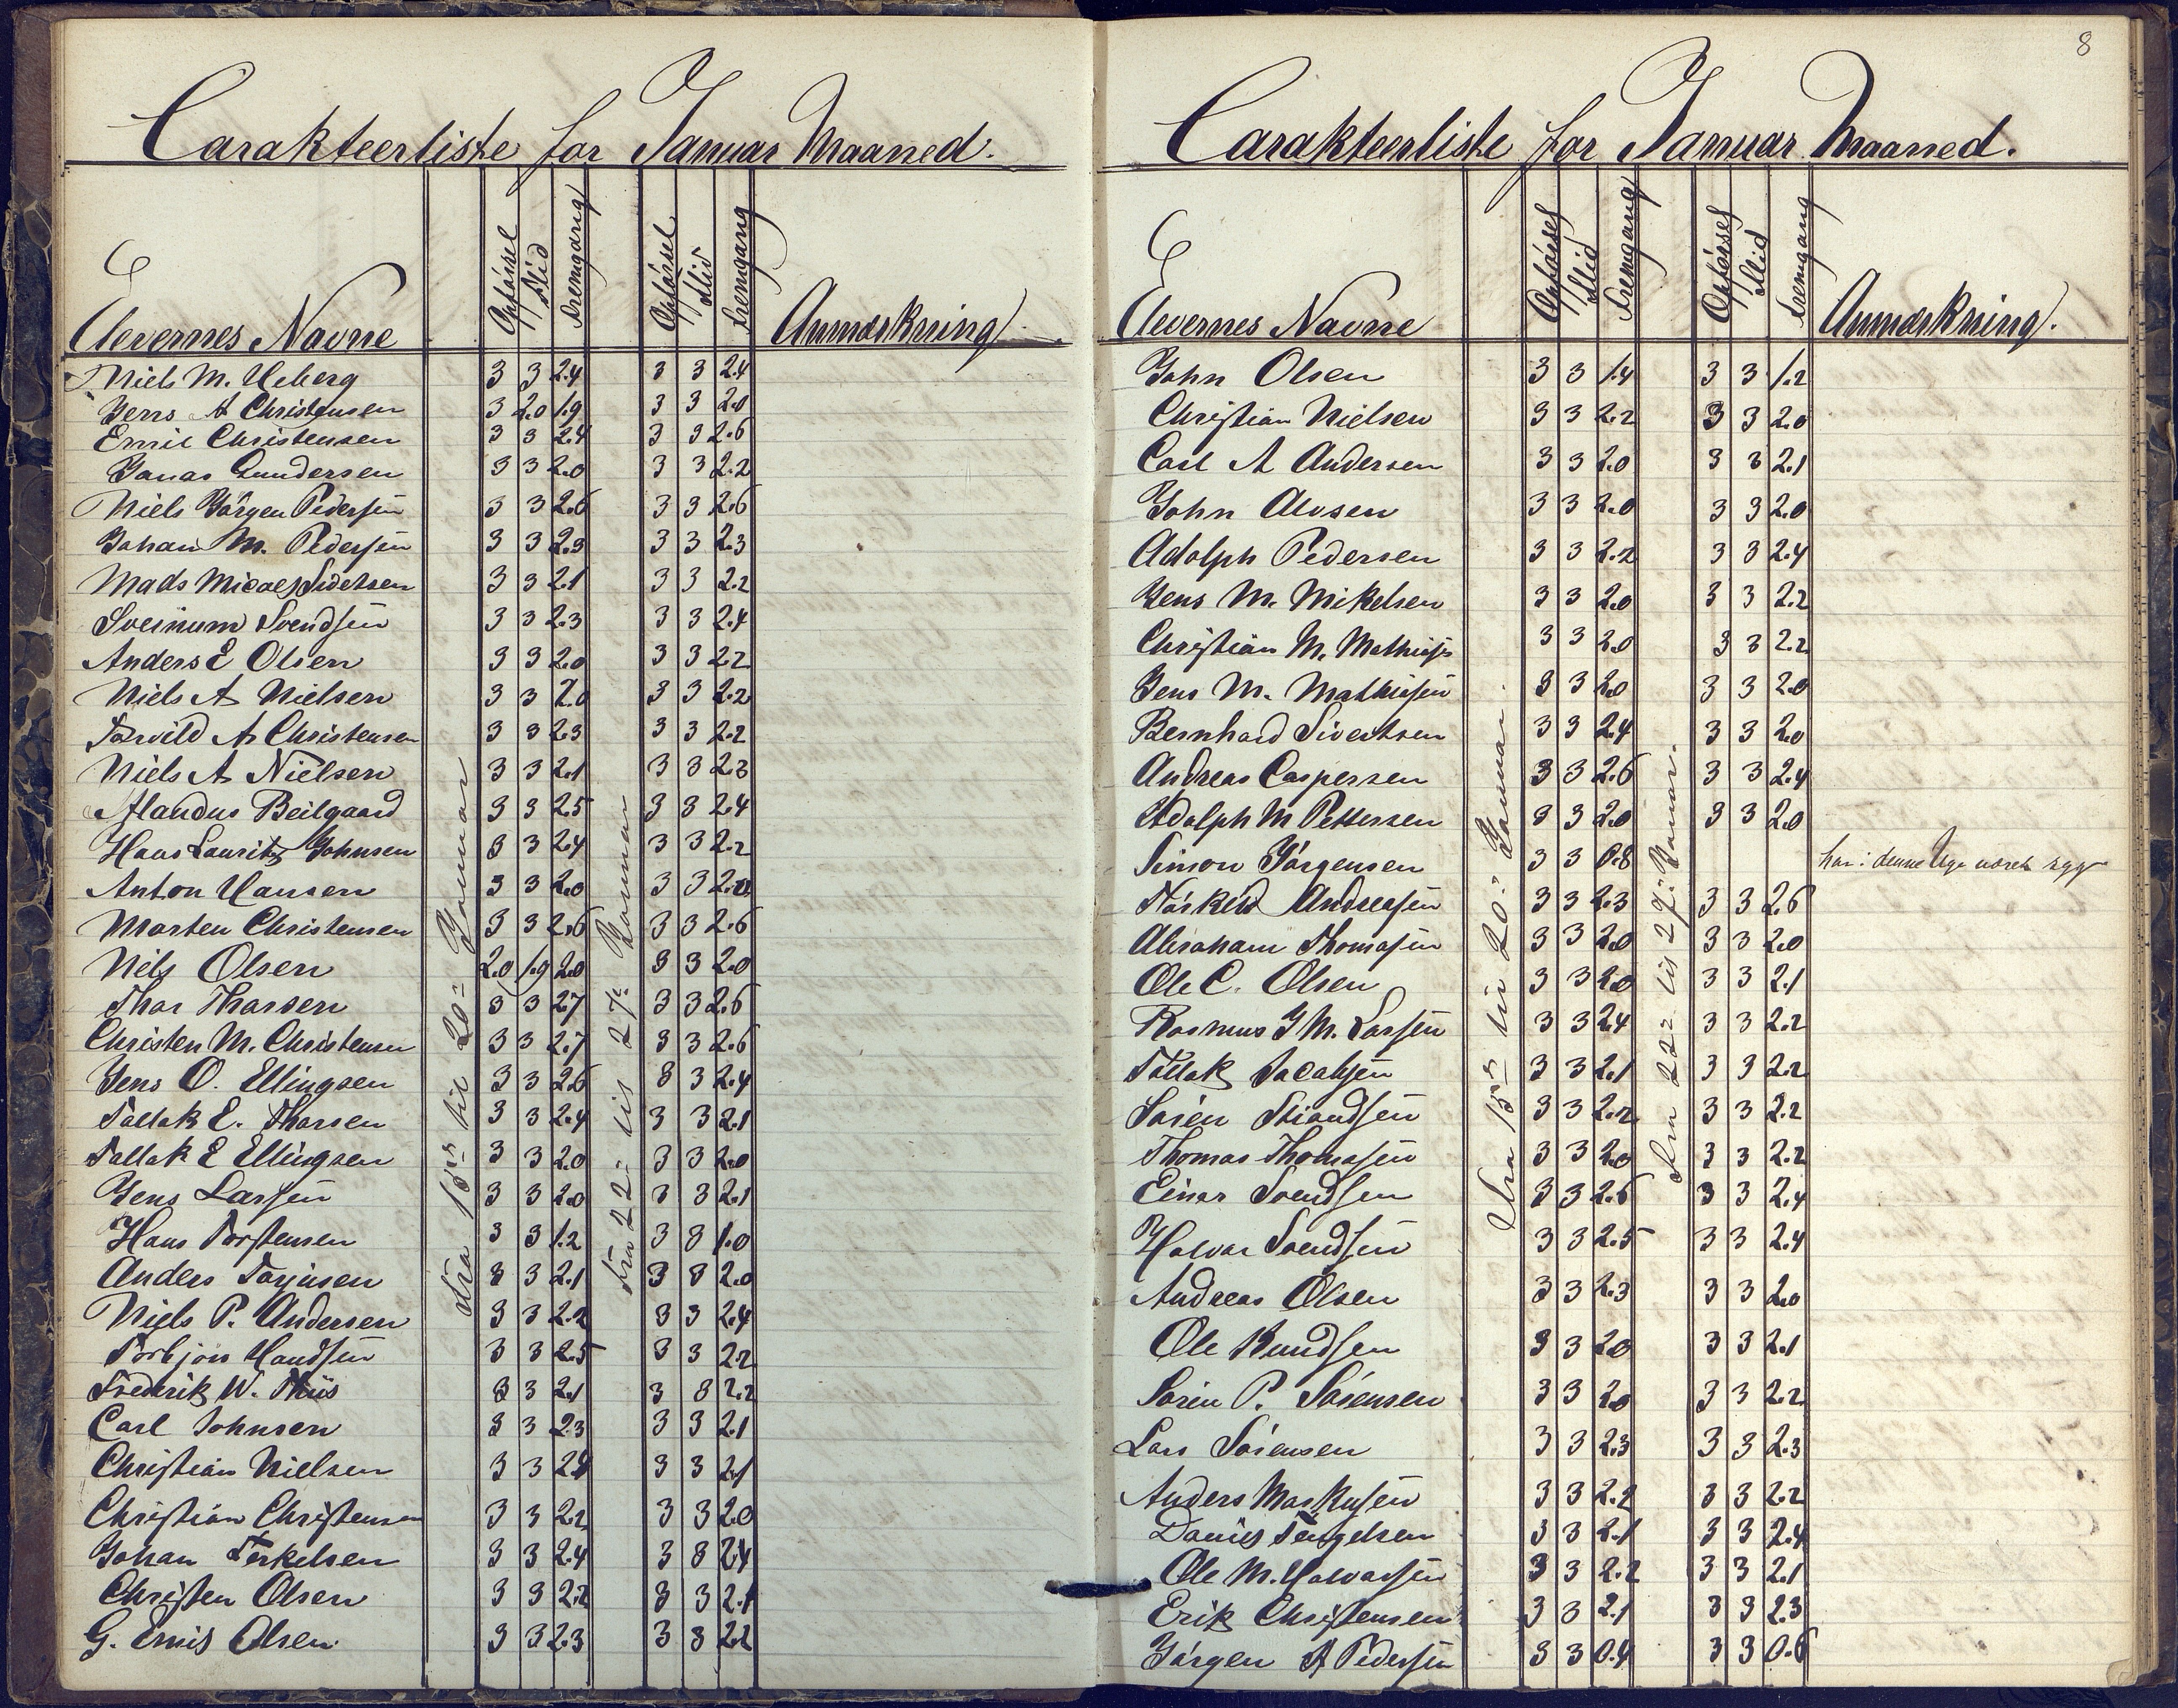 Carakteerliste for Januar Maaned.
Elevernes Navne Opförsel Flid Fremgang Opförsel Flid Fremgang Anmærkning
Fra 15de til 20de Januar
Fra 22de til 27de Januar
Niels M. Ueberg 3 3 2.4 3 3 2.4
Jens A Christensen 3 2.0 1.9 3 3 2.0
Emil Christensen 3 3 2.4 3 3 2.6
Jonas Gundersen 3 3 2.0 3 3 2.2
Niels Jörgen Pedersen 3 3 2.6 3 3 2.6
Johan M. Pedersen 3 3 2.3 3 3 2.3
Mads Micael Sivetsen 3 3 2.1 3 3 2.2
Sveinum Svendsen 3 3 2.3 3 3 2.4
Anders E Olsen 3 3 2.0 3 3 2.2
Niels A Nielsen 3 3 2.0 3 3 2.2
Torvild A Christensen 3 3 2.3 3 3 2.2
Niels A Nielsen 3 3 2.1 3 3 2.3
Beilgaard 3 3 2.5 3 3 2.4
Hans Lauritz Johnsen 3 3 2.4 3 3 2.2
Anton Hansen 3 3 2.0 3 3
Morten Christensen 3 3 2.6 3 3 2.6
Nils Olsen 2.0 1.9 2.0 3 3 2.0
Thor Thorsen 3 3 2.7 3 3 2.6
Christen M. Christensen 3 3 2.7 3 3 2.6
Jens O. Ellingsen 3 3 2.6 3 3 2.4
Tallak E. Thorsen 3 3 2.4 3 3 2.1
Tallak E Ellingsen 3 3 2.0 3 3 2.0
Jens Larsen 3 3 2.0 3 3 2.1
Hans Torstensen 3 3 1.2 3 3 1.0
Anders Torjusen 3 3 2.1 3 3 2.0
Niels P. Andersen 3 3 2.2 3 3 2.4
Torbjön 3 3 2.5 3 3 2.2
Frederik W. Thiis 3 3 2.1 3 3 2.2
Carl Johnsen 3 3 2.3 3 3 2.1
Christian Nielsen 3 3 3 3 2.1
Christian Christensen 3 3 2.2 3 3 2.0
Johan Terkelsen 3 3 2.4 3 3 2.4
Christen Olsen 3 3 2.2 3 3 2.1
G. Emil Olsen 3 3 2.3 3 3 2.2
8
Carakteerliste for Januar Maaned.
Elevernes Navne Opförsel Flid Fremgang Opförsel Flid Fremgang Anmærkning.
Fra 15de til 20de Januar.
Fra 22de til 27de Januar.
John Olsen 3 3 1.4 3 3 1.2
Christian Nielsen 3 3 2.2 3 3 2.0
Carl A Andersen 3 3 2.0 3 3 2.1
John Alvsen 3 3 2.0 3 3 2.0
Adolph Pedersen 3 3 2.2 3 3 2.4
Jens M. Mikelsen 3 3 2.0 3 3 2.2
Christian M. Mathiass 3 3 2.0 3 3 2.2
Jens M. Mathiasen 3 3 2.0 3 3 2.0
Bernhard Sivertsen 3 3 2.4 3 3 2.0
Andreas Caspersen 3 3 2.6 3 3 2.4
Adolph M Pettersen 3 3 2.0 3 3 2.0
Simon Jörgensen 3 3 0.8 har i denne Uge været syg
Andreasen 3 3 2.3 3 3 2.6
Abraham Thomasen 3 3 2.0 3 3 2.0
Ole C. Olsen 3 3 2.0 3 3 2.1
Rasmus J M. Larsen 3 3 2.4 3 3 2.2
Tallak Jacobsen 3 3 2.1 3 3 2.2
Sören Strandsen 3 3 2.2 3 3 2.2
Thomas Thomasen 3 3 2.0 3 3 2.2
Einar Svendsen 3 3 2.6 3 3 2.4
Halvor Svendsen 3 3 2.5 3 3 2.4
Andreas Olsen 3 3 2.3 3 3 2.0
Ole Knudsen 3 3 2.0 3 3 2.1
Sören P. Sörensen 3 3 2.0 3 3 2.2
Lars Sörensen 3 3 2.3 3 3 2.3
Anders Markusen 3 3 2.2 3 3 2.2
Daniel Tengelsen 3 3 2.1 3 3 2.4
Ole M. Halvorsen 3 3 2.2 3 3 2.1
Erik Christensen 3 3 2.1 3 3 2.3
Jörgen A Pedersen 3 3 0.4 3 3 0.6